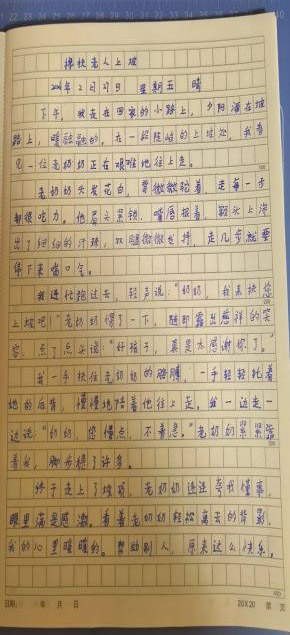 搀扶老人上坡
2026年2月27日 星期五 晴
下午，我走在回家的小路上，夕阳洒在坡
路上，暖融融的。在一段陡峭的上坡处，我看
见一位老奶奶正在艰难地往上走。
老奶奶头发花白，背微微驼着，走每一步
都很吃力。他眉头紧锁，嘴唇抿着，额头上渗
出了细细的汗珠，双腿微微发抖，走几步就要
停下来喘口气。
我连忙跑过去，轻声说：“奶奶，我来扶您
上坡吧！”老奶奶愣了一下，随即露出慈祥的笑
容，点了点头说：“好孩子，真是太感谢你了。”
我一手扶住老奶奶的胳膊，一手轻轻托着
她的后背，慢慢地陪着他往上走。我一边走一
边说：“奶奶，您慢点，不着急。”老奶奶紧紧靠
着我，脚步稳了许多。
终于走上了坡顶，老奶奶连连夸我懂事，
眼里满是感激。看着老奶奶轻松离去的背影，
我的心里暖暖的。帮助别人，原来这么快乐。
日期： 年 月 日 20X20 第 页